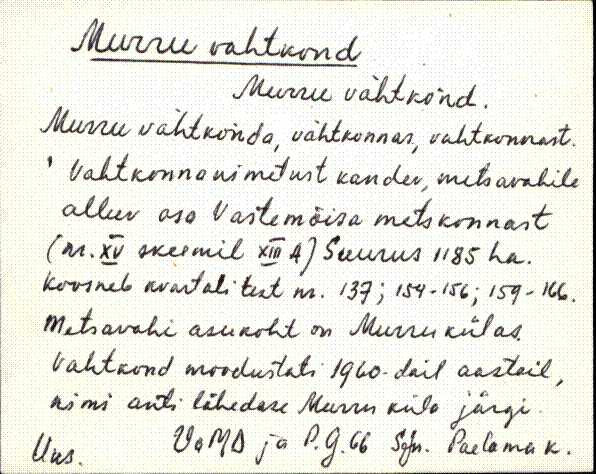 Murru vahtkond
Murru vàhtkònd.
Murru vàhtkònda, vàhtkonnas, vahtkonnast.
Vahtkonna nimetust kandev, metsavahile
alluv osa Vastemõisa metskonnast
(nr. XV skeemil XIII A) Suurus 1185 ha.
Koosneb kvartalitest nr. 137; 154-156; 159-166.
Metsavahi asukoht on Murru külas.
Vahtkond moodustati 1960-dail aastail,
nimi anti lähedase Murru küla järgi.
Uus. VaMD ja P.G.66 Sjn. Paelama k.